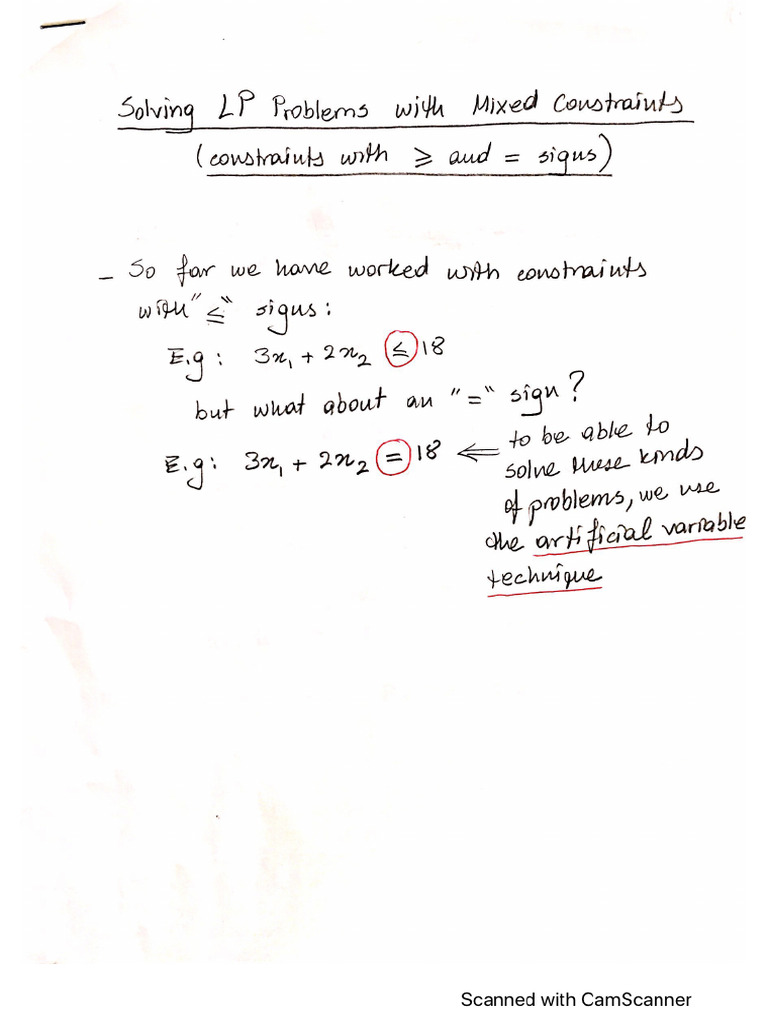 Solving LP Problems with Mixed Constraints
(constraints with ≥ and = signs)
- So far we have worked with constraints
with "≤" signs:
E.g: 3x₁ + 2x₂ ≤ 18
but what about an "=" sign?
E.g: 3x₁ + 2x₂ = 18 ⇐ to be able to
solve these kinds
of problems, we use
the artificial variable
technique
Scanned with CamScanner